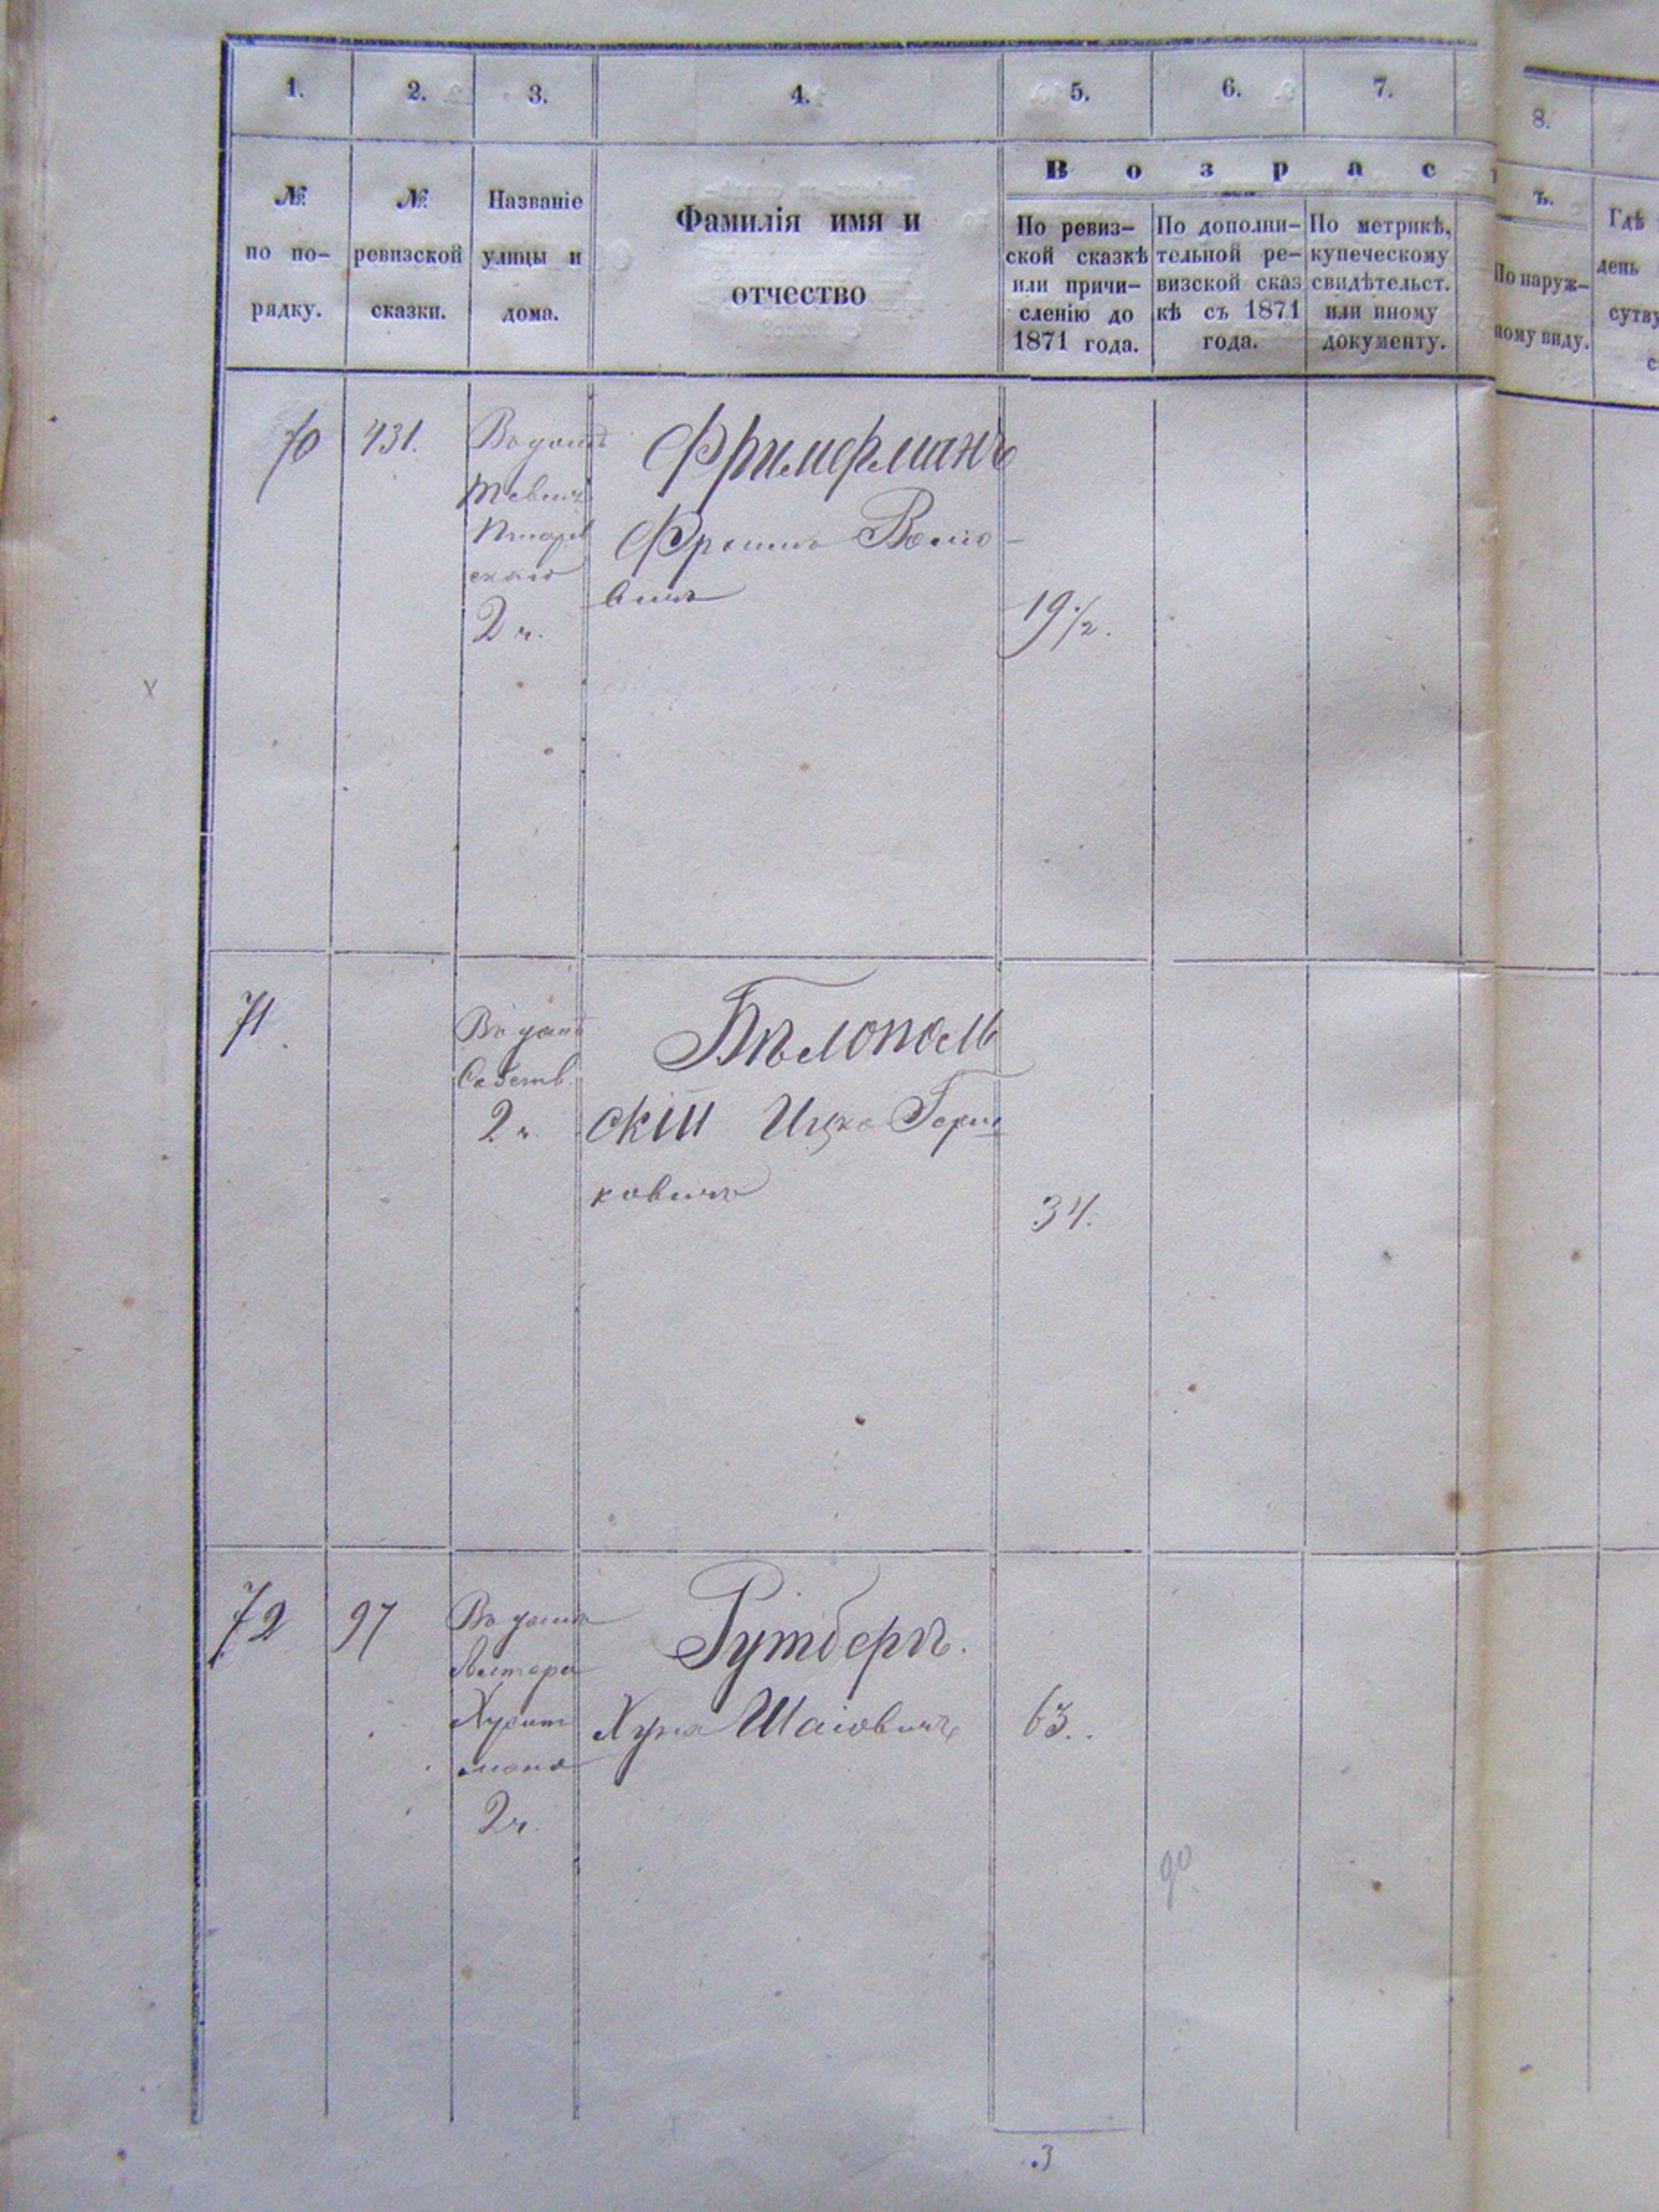 1. 2. 3. 4. 5. 6. 7. 8.
В о з р а с
ъ.
№ по по- рядку.
№ ревизской сказки.
Названіе улицы и дома.
Фамилія имя и отчество
По ревиз-
ской сказкѣ
или причи-
сленію до
1871 года.
По дополни-
тельной ре-
визской сказ
кѣ съ 1871
года.
По метрикѣ,
купеческому
свидѣтельст.
или иному
документу.
По наруж-
ному виду.
Гдѣ
день
сутву
с
70 431.
Въ домѣ
2 ч.
Фримерманъ
вичъ
19 1/2.
71.
Въ домѣ
Собств.
2 ч.
Бѣлополь
скій Ицко Герш
ковичъ
34.
72 97
Въ домѣ
2 ч.
Гутберъ.
Хуна Шаіовичъ
63.
90
3